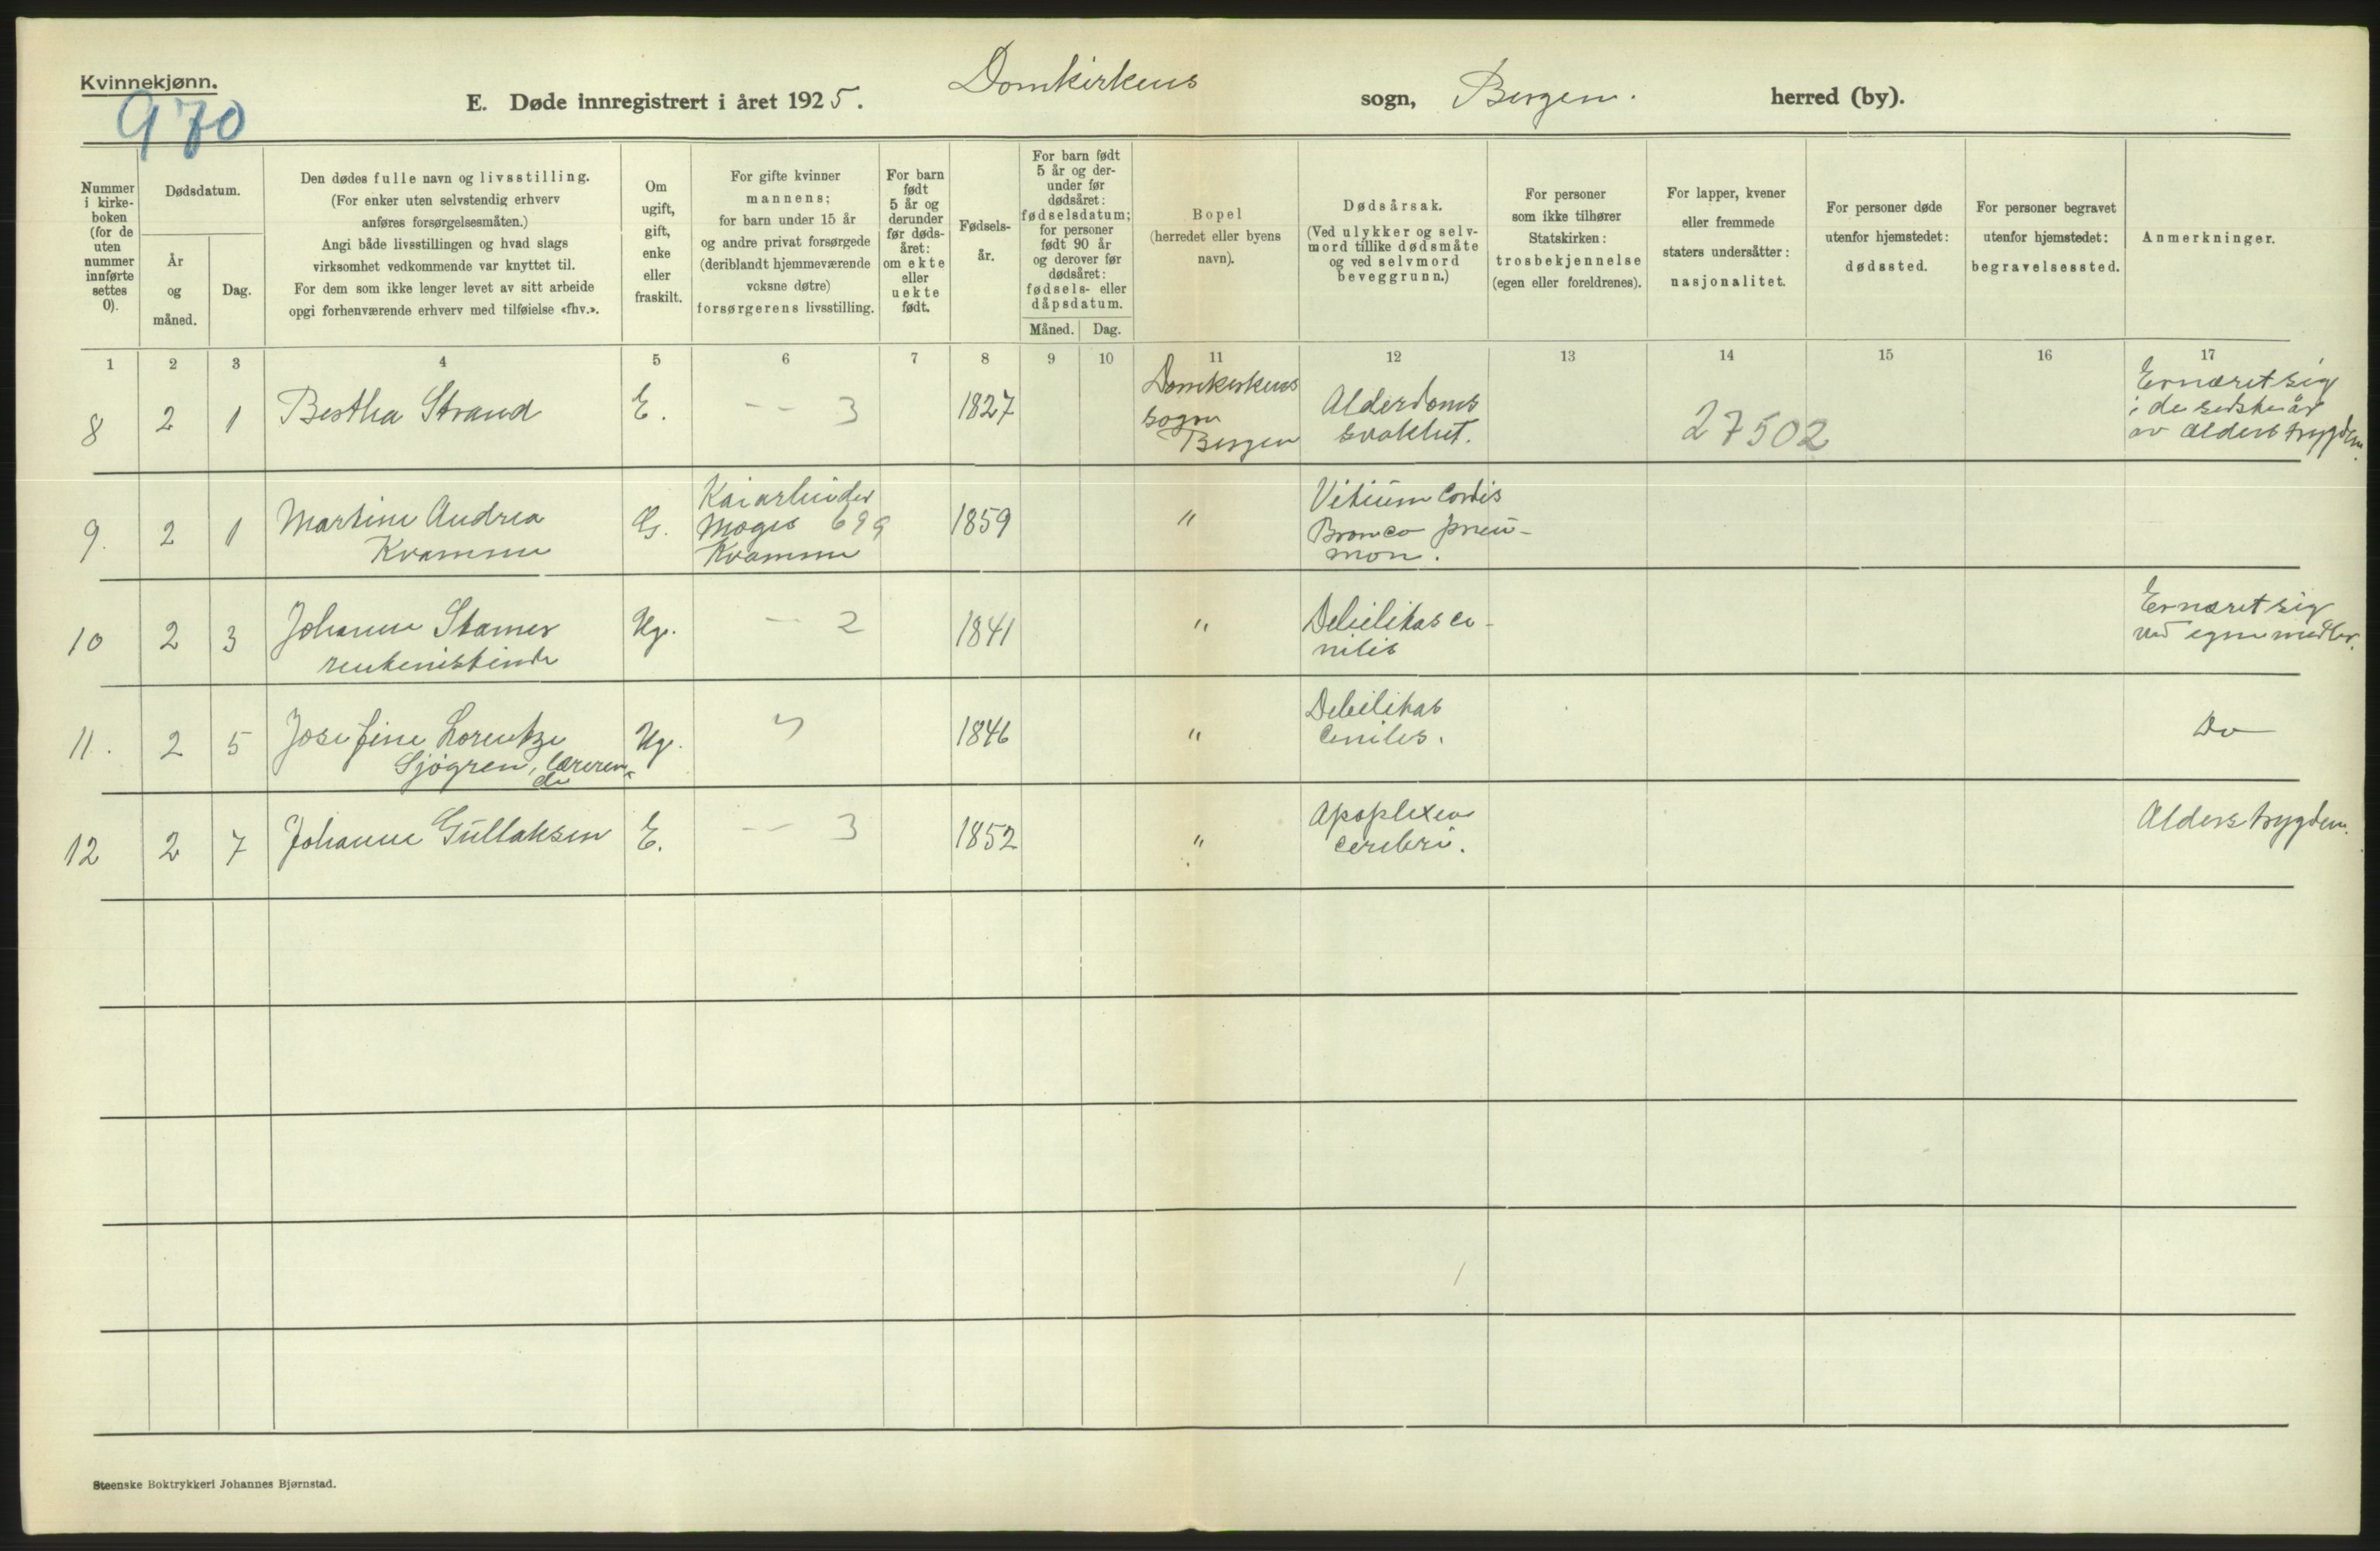 Kvinnekjønn.
970
E. Døde innregistrert i året 1925. Domkirkens sogn, Bergen. herred (by).
Nummer
i kirke-
boken
(for de
uten
nummer
innførte
settes
0).
Dødsdatum.
År
og
måned.
Dag.
Den dødes fulle navn og livsstilling.
(For enker uten selvstendig erhverv
anføres forsørgelsesmåten.)
Angi både livsstillingen og hvad slags
virksomhet vedkommende var knyttet til.
For dem som ikke lenger levet av sitt arbeide
opgi forhenværende erhverv med tilføielse «fhv.».
Om
ugift,
gift,
enke
eller
fraskilt.
For gifte kvinner
mannens;
for barn under 15 år
og andre privat forsørgede
(deriblandt hjemmeværende
voksne døtre)
forsørgerens livsstilling.
For barn
født
5 år og
derunder
før døds-
året:
om ekte
eller
uekte
født.
Fødsels-
år.
For barn født
5 år og der-
under før
dødsåret:
fødselsdatum;
for personer
født 90 år
og derover før
dødsåret:
fødsels- eller
dåpsdatum.
Måned. Dag.
Bopel
(herredet eller byens
navn).
Dødsårsak.
(Ved ulykker og selv-
mord tillike dødsmåte
og ved selvmord
beveggrunn.)
For personer
som ikke tilhører
Statskirken:
trosbekjennelse
(egen eller foreldrenes).
For lapper, kvener
eller fremmede
staters undersåtter:
nasjonalitet.
For personer døde
utenfor hjemstedet:
dødssted.
For personer begravet
utenfor hjemstedet:
begravelsessted.
Anmerkninger.
1 2 3 4 5 6 7 8 9 10 11 12 13 14 15 16 17
8 2 1 Bertha Strand E. — 3 1827
Domkirkens
sogn
Bergen
Alderdoms
svakhet.
27502
Ernæret sig
i de sidste år
av Alderstrygden.
9. 2 1 Martine Andrea
Kvamme
G.
Kaiarbeider
Mogis 699
Kvamme
1859 "
Vitium Cordis
Bronco pneu-
mon.
10 2 3 Johanne Stamer
rentenistinde
Ug. — 2 1841 "
Debilitas ce-
nilis
Ernæret sig
ved egne midler.
11. 2 5 Josefine Lorentze
Sjøgren, lærerin-
de
Ug. 1846 "
Debilitas
Ceniles.
Do
12 2 7 Johanne Gullaksen E. — 3 1852 "
Apoplexia
cerebri.
Alderstrygden.
Steenske Boktrykkeri Johannes Bjørnstad.